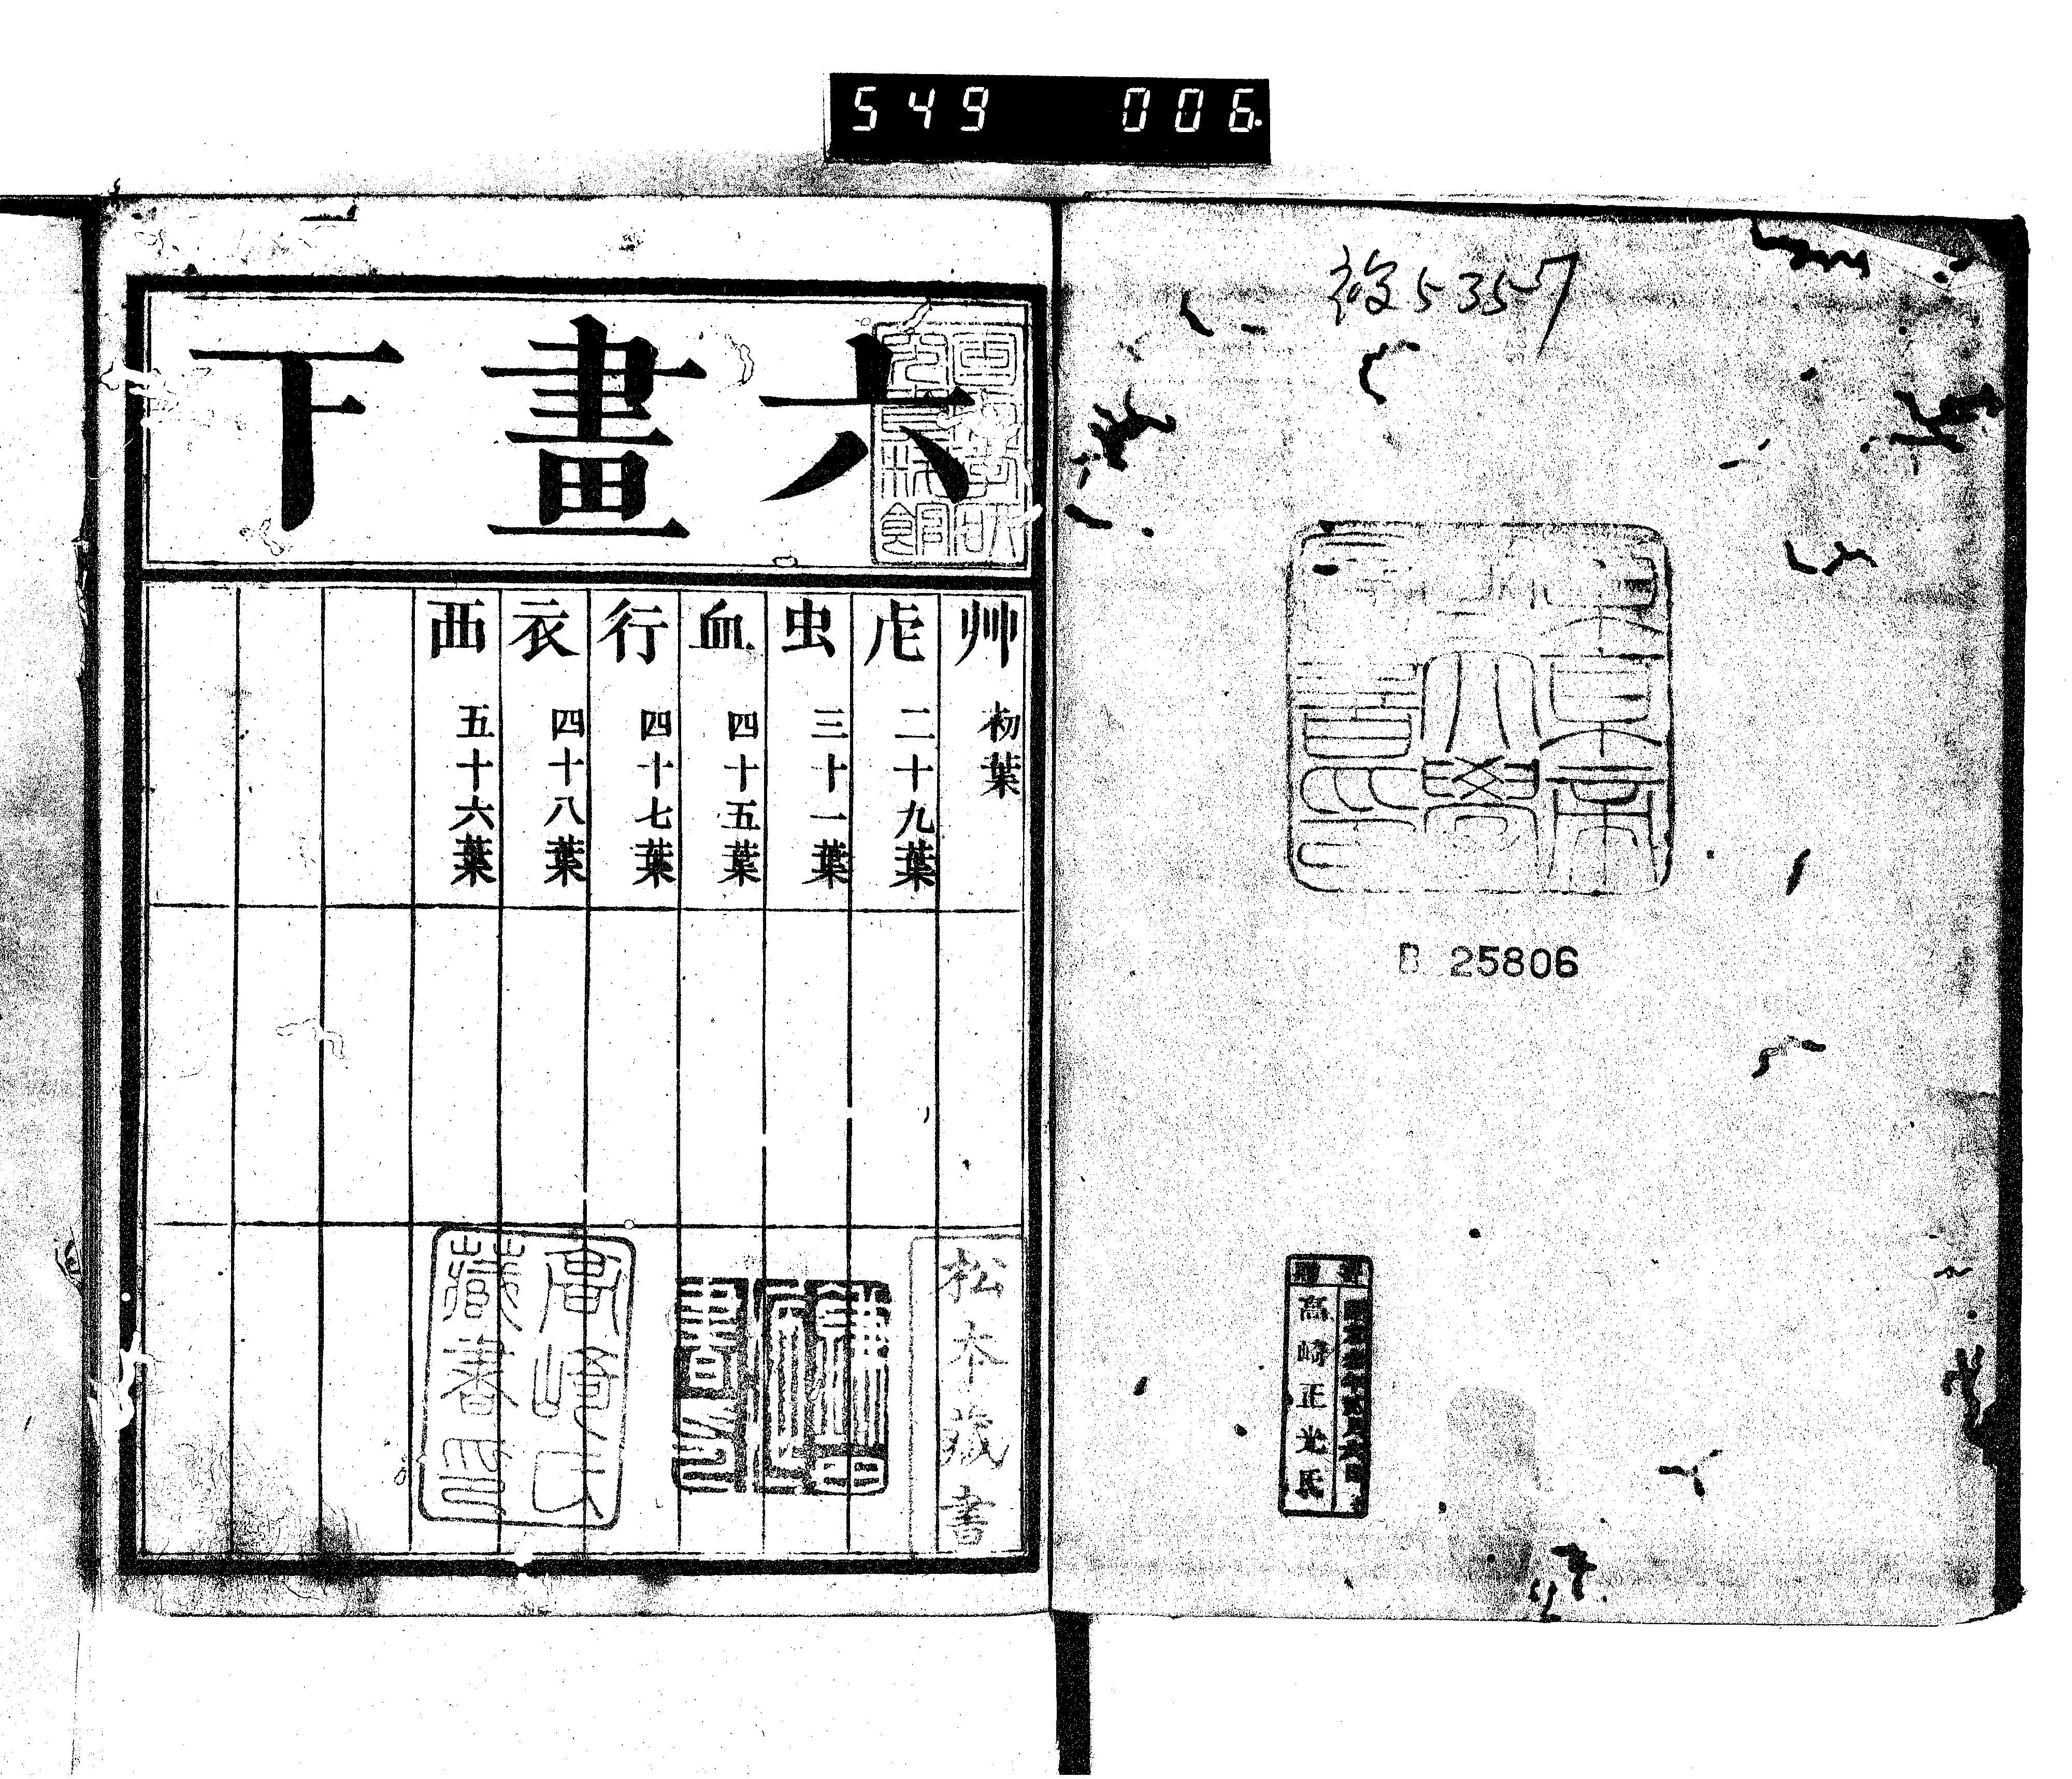 549 006
複5357
東京帝
大學
B 25806
高崎正光氏
六畫下
艸 初葉
虍 二十九葉
虫 三十一葉
血 四十五葉
行 四十七葉
衣 四十八葉
襾 五十六葉
松本藏書
高崎氏
藏書印